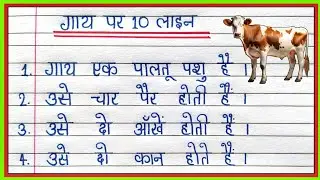 गाय पर 10 लाइन
1. गाय एक पालतू पशु है ।
2. उसे चार पैर होती हैं ।
3. उसे दो आँखें होती हैं ।
4. उसे दो कान होते हैं ।